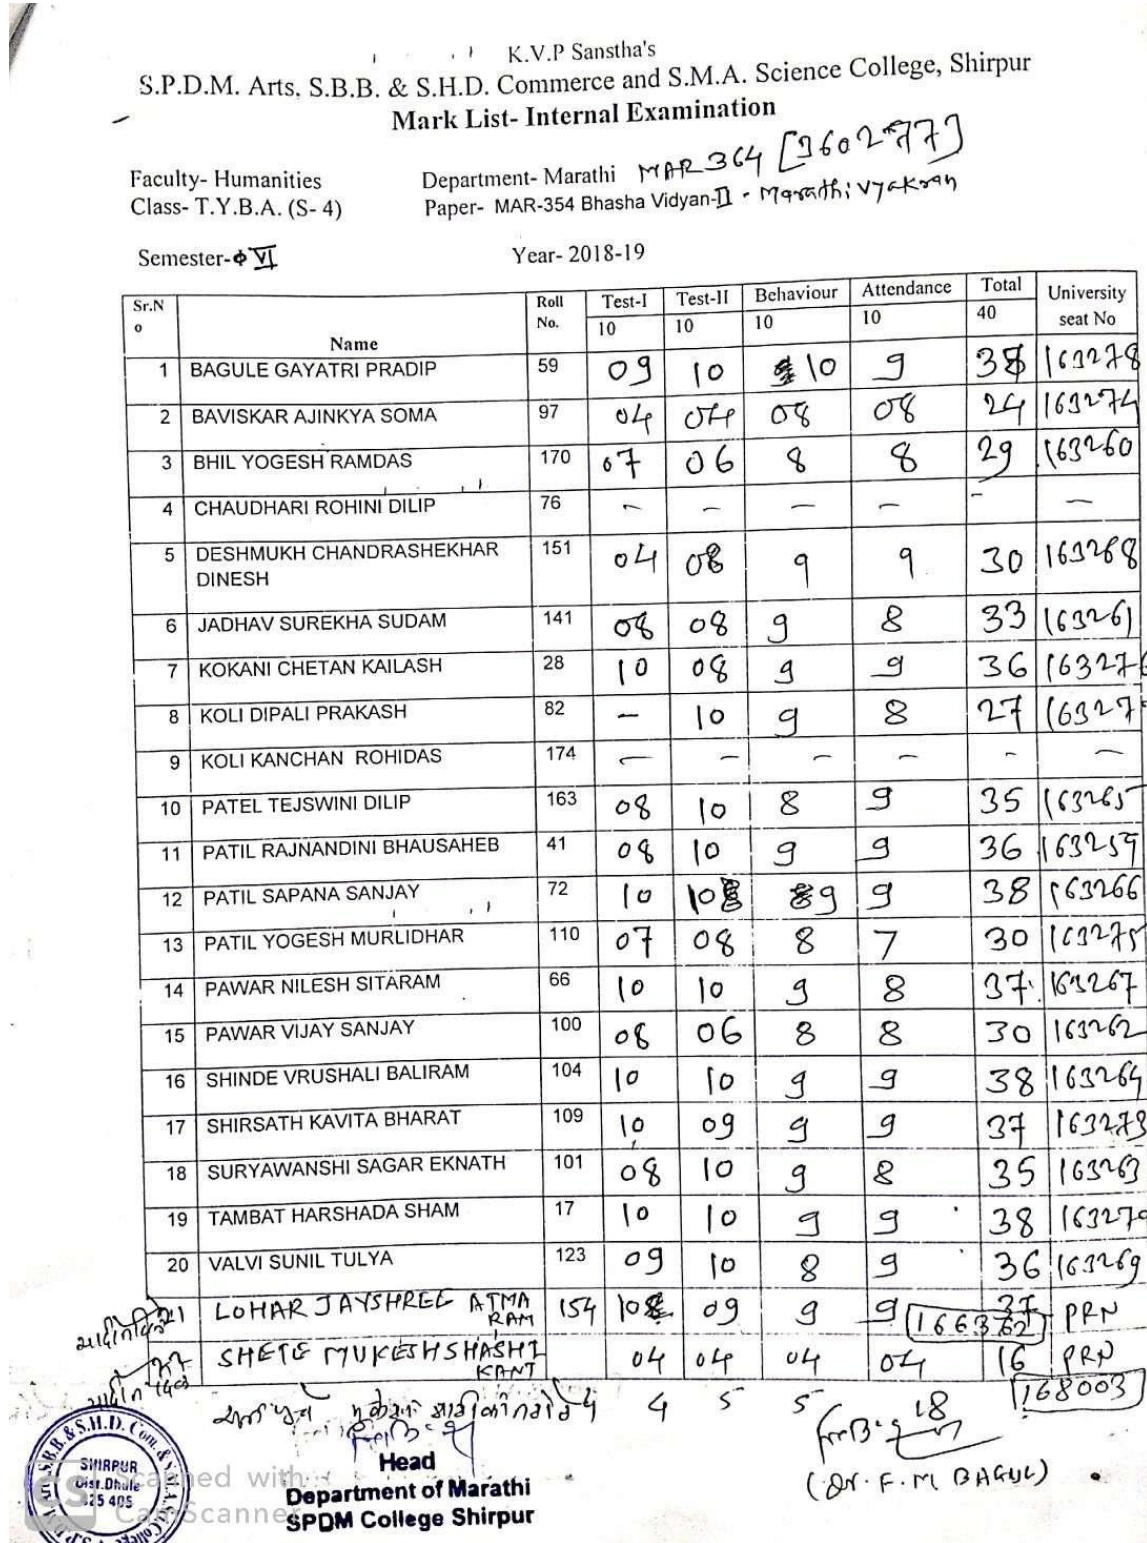 K.V.P Sanstha's
S.P.D.M. Arts, S.B.B. & S.H.D. Commerce and S.M.A. Science College, Shirpur
Mark List- Internal Examination
Faculty- Humanities Department- Marathi MAR 364
Class- T.Y.B.A. (S- 4) Paper- MAR-354 Bhasha Vidyan-II - Marathi vyakran
Semester- VI Year- 2018-19
Sr.No Name Roll No. Test-I Test-II Behaviour Attendance Total University seat No
10 10 10 10 40
1 BAGULE GAYATRI PRADIP 59 09 10 10 9 38 163278
2 BAVISKAR AJINKYA SOMA 97 04 04 08 08 24 163274
3 BHIL YOGESH RAMDAS 170 07 06 8 8 29 163260
4 CHAUDHARI ROHINI DILIP 76 - - - - - -
5 DESHMUKH CHANDRASHEKHAR DINESH 151 04 08 9 9 30 163268
6 JADHAV SUREKHA SUDAM 141 08 08 9 8 33 163261
7 KOKANI CHETAN KAILASH 28 10 08 9 9 36
8 KOLI DIPALI PRAKASH 82 - 10 9 8 27
9 KOLI KANCHAN ROHIDAS 174 - - - - - -
10 PATEL TEJSWINI DILIP 163 08 10 8 9 35 163265
11 PATIL RAJNANDINI BHAUSAHEB 41 08 10 9 9 36 163259
12 PATIL SAPANA SANJAY 72 10 10 9 9 38 163266
13 PATIL YOGESH MURLIDHAR 110 07 08 8 7 30 163275
14 PAWAR NILESH SITARAM 66 10 10 9 8 37 163267
15 PAWAR VIJAY SANJAY 100 08 06 8 8 30 163262
16 SHINDE VRUSHALI BALIRAM 104 10 10 9 9 38 163264
17 SHIRSATH KAVITA BHARAT 109 10 09 9 9 37 163273
18 SURYAWANSHI SAGAR EKNATH 101 08 10 9 8 35 163263
19 TAMBAT HARSHADA SHAM 17 10 10 9 9 38 163279
20 VALVI SUNIL TULYA 123 09 10 8 9 36 163269
LOHAR JAYSHREE ATMARAM 154 10 09 9 9 37 PRN
166362
SHETE MUKESH SHASHIKANT 04 04 04 04 16 PRN
168003
4 5 5 18
Head
Department of Marathi
SPDM College Shirpur
(Dr. F. M BAGUL)
SHIRPUR
Dist.Dhule
425 405
CS Scanned with CamScanner